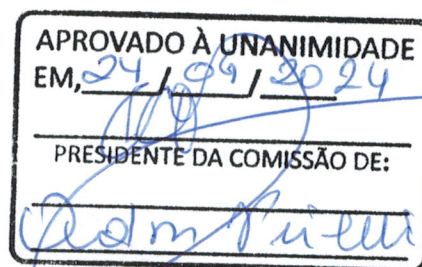 APROVADO À UNANIMIDADE
EM, 24/09/2024
PRESIDENTE DA COMISSÃO DE: